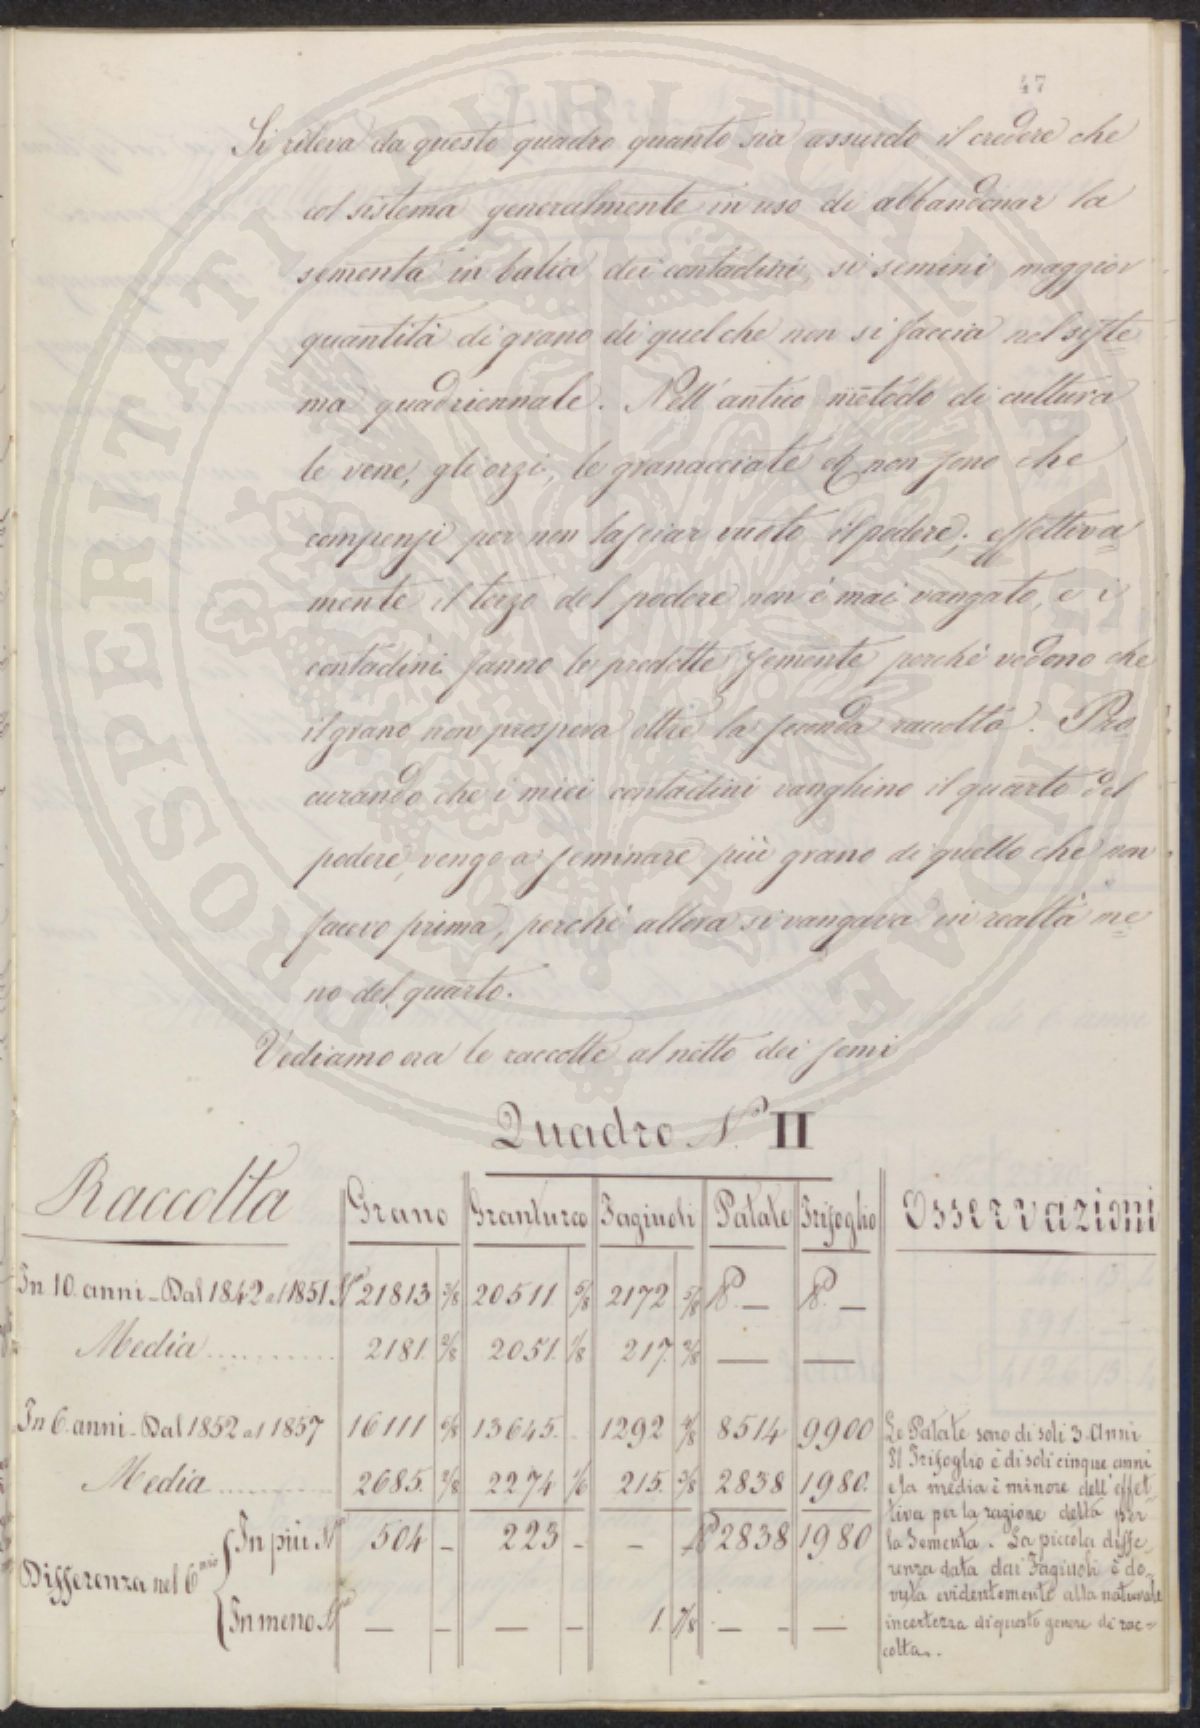 47
Si rileva da questo quadro quanto sia assurdo il credere che
col sistema generalmente in uso di abbandonar la
sementa in balia dei contadini, si semini maggior
quantità di grano di quel che non si faccia nel siste=
ma quadriennale. Nell'antico metodo di cultura
le vene, gli orzi, le granacciate &c non sono che
compensi per non lasciar vuoto il podere; effettiva=
mente il terzo del podere non è mai vangato, e i
contadini fanno le predette semente perchè vedono che
il grano non prospera oltre la seconda raccolta. Pro=
curando che i miei contadini vanghino il quarto del
podere, vengo a seminare più grano di quello che non
facevo prima, perchè allora si vangava in realtà me=
no del quarto.
Vediamo ora le raccolte al netto dei semi
Quadro N.º II
Raccolta Grano Granturco Fagiuoli Patate Trifoglio Osservazioni
In 10 anni - Dal 1842 al 1851 21813 3/8 20511 5/8 2172 5/8 ℔. — ℔. —
Media .......... 2181. 2/8 2051. 1/8 217. 2/8 — —
In 6. anni - Dal 1852 al 1857 16111 6/8 13645. - 1292 4/8 8514 9900
Media .......... 2685. 2/8 2274 1/6 215. 3/8 2838 1980.
Differenza nel 6.nnio
In più 504 - 223 - - ℔ 2838 1980
In meno — - — - 1. 7/8 — - —
Le Patate sono di soli 3. Anni
Il Trifoglio è di soli cinque anni
e la media è minore dell'effet-
tiva per la ragione detta per
la Sementa. La piccola diffe-
renza data dai Fagiuoli è do-
vuta evidentemente alla naturale
incertezza di questo genere di rac-
colta.
PROSPERITATI PUBLICAE AUGENDAE